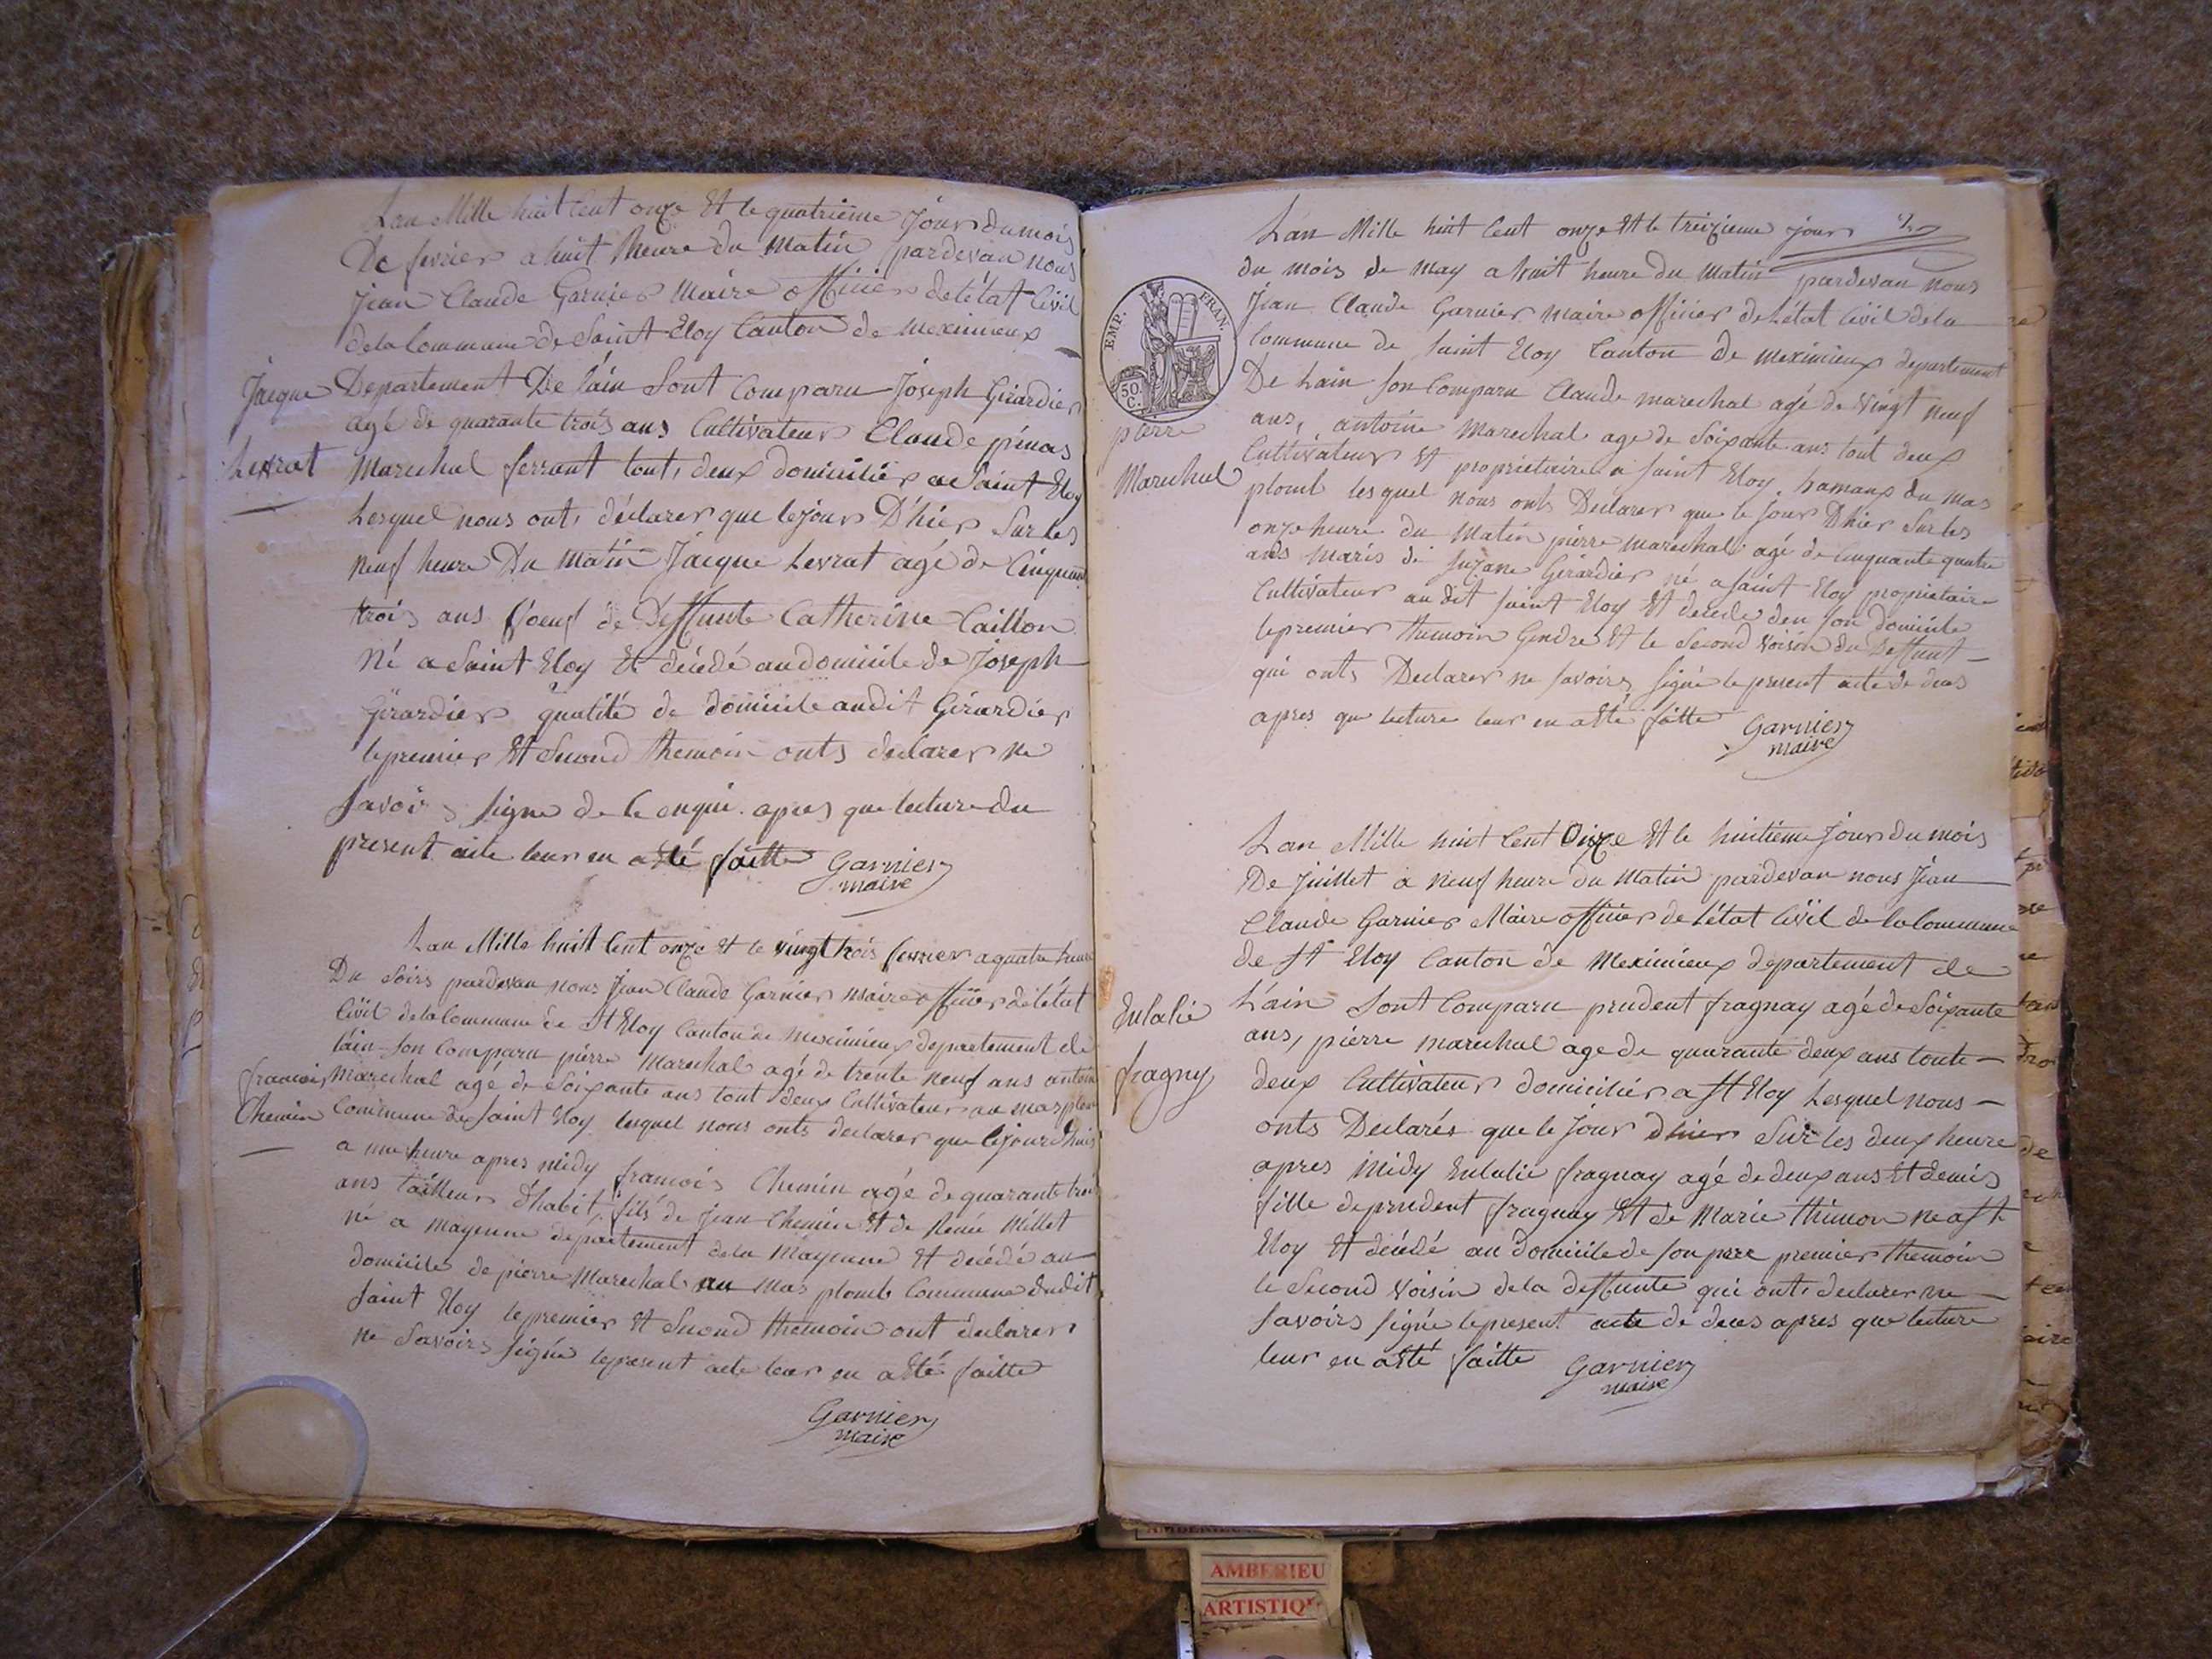 Lan Mille huit Cent onze Et le quatrieme Jour du mois
De fevrier a huit heure du Matin pardevan nous
Jean Claude Garnier Maire officier de létat Civil
dela Commune de Saint Eloy Canton de meximieux
Jacque
Levrat
Departement De láin Sont Comparu Joseph Girardier
agé de quarante trois ans Cultivateur Claude pinas
Marechal ferrant tout deux domicilier a Saint Eloy
Lesquel nous ont déclarer que le jour D'hier Sur les
neuf heure Du Matin Jacque Levrat agé de Cinquante
trois ans Voeuf de Deffunte Catherine Caillon
Né a Saint Eloy Et décédé au domicile de Joseph
Girardier qualité de domicile audit Girardier
le premier Et Second themoin onts déclarer ne
Savoir signe de Ce enqui apres que lecture du
present acte leur en a Eté faitte Garnier
maire
Lan Mille huit Cent onze Et le vingt trois fevrier a quatre heure
Du Soirs pardevan nous Jean Claude Garnier Maire officier de létat
Civil dela Commune de St Eloy Canton de Meximieux departement de
láin son Comparu pierre Marechal agé de trente neuf ans antoine
francois
Chemin
Marechal agé de Soixante ans tout deux Cultivateur au mas plomb
Commune de Saint Eloy lesquel nous onts declarer que le jour dhuis
a une heure apres midy francois Chemin agé de quarante trois
ans tailleur d'habit fils de Jean Chemin Et de Renée Millet
né a Mayenne département dela Mayenne Et décédé au
domicile de pierre Marechal au Mas plomb Commune dudit
Saint Eloy le premier Et Second themoin ont declarer
ne Savoir signée le present acte leur en a Eté faitte
Garnier
maire
Lán Mille huit Cent onze Et le treizieme jour
du mois de May a huit heure du Matin pardevan nous
EMP. FRAN.
50 C.
Jean Claude Garnier Maire officier de Létat Civil dela
Commune de Saint Eloy Canton de Meximieux departement
De Lain son Comparu Claude marechal agé de Vingt neuf
pierre
Marechal
ans, antoine Marechal age de Soixante ans tout deux
Cultivateur Et proprietaire a Saint Eloy hamaux du mas
plomb lesquel nous onts Declarer que le jour D'hier Sur les
onze heure du Matin pierre marechal agé de Cinquante quatre
ans maris de Suzane Girardier né a Saint Eloy proprietaire
Cultivateur au dit Saint Eloy Et decede den son domicile
le premier themoin Gendre Et le Second Voisin du Deffunt
qui onts Declarer ne Savoirs signé le present acte de deces
apres que lecture leur en a Eté faitte Garnier
maire
Lan Mille huit Cent Onze Et le huitième Jour du mois
De Juillet a Neuf heure du Matin pardevan nous Jean
Claude Garnier Maire officier de létat Civil de la Commune
de St Eloy Canton de Meximieux departement de
Eulalie
fragny
L'ain Sont Comparu prudent fragnay agé de Soixante
ans, pierre marechal age de quarante deux ans toute
deux Cultivateur domicilier a St Eloy Lesquel nous
onts Declarés que le Jour d'hier Sur les deux heure
apres Midy Eulalie fragnay agé de deux ans Et demis
fille de prudent fragnay Et de Marie thimon ne a St
Eloy Et décédé au domicile de son pere premier themoin
le Second Voisin dela deffunte qui ont declarer ne
Savoirs signé le present acte de deces apres que lecture
leur en a Eté faitte Garnier
maire
AMBERIEU
ARTISTIQ